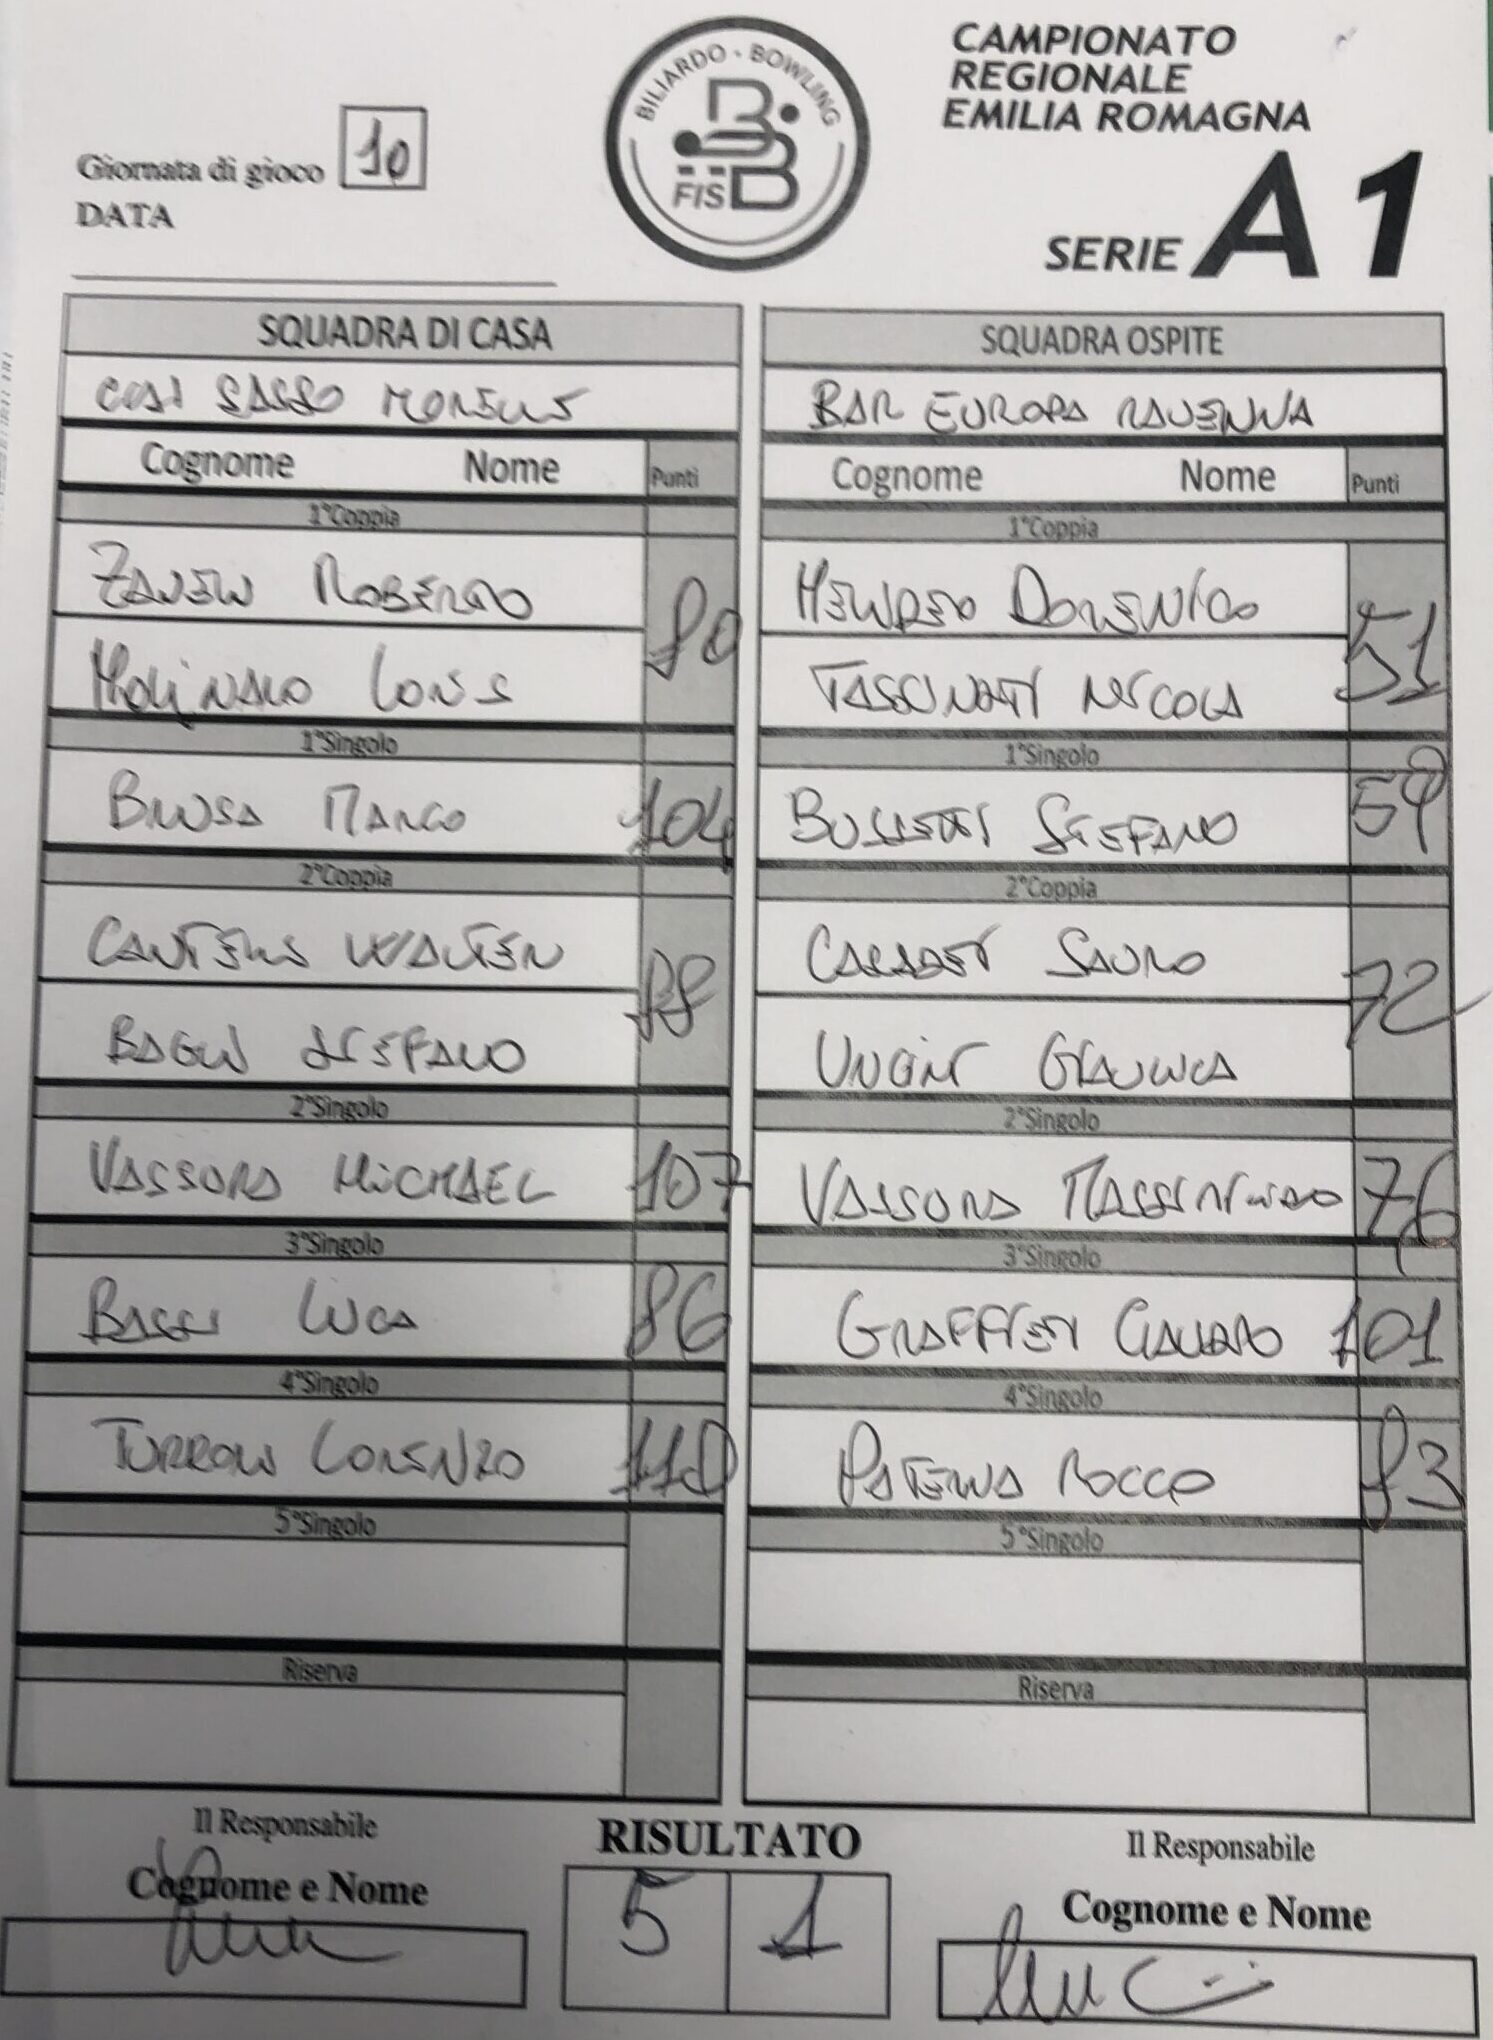 BILIARDO - BOWLING
FISBB
CAMPIONATO
REGIONALE
EMILIA ROMAGNA
SERIE A1
Giornata di gioco 10
DATA
SQUADRA DI CASA
SASSO
Cognome Nome Punti
1°Coppia
ROBERTO
80
MOLINARO
1°Singolo
BRUSA MARCO 104
2°Coppia
WALTER
88
STEFANO
2°Singolo
VASSURA MICHAEL 107
3°Singolo
BASSI LUCA 86
4°Singolo
TURRONI LORENZO 110
5°Singolo
Riserva
SQUADRA OSPITE
BAR EUROPA RAVENNA
Cognome Nome Punti
1°Coppia
DOMENICO
51
TASSINARI NICOLA
1°Singolo
STEFANO 59
2°Coppia
SAURO
72
GIANLUCA
2°Singolo
VASSURA MASSIMILIANO 76
3°Singolo
101
4°Singolo
PATERNA ROCCO 83
5°Singolo
Riserva
Il Responsabile
Cognome e Nome
RISULTATO
5 1
Il Responsabile
Cognome e Nome